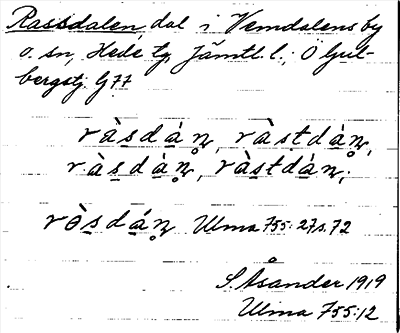 Rassdalen, dal i Vemdalens by
o. sn, Hede tg Jämtl. l.; Ö Ljul-
bergstj. G 77
ràsdán̥, ràstdàn̥,
ràsdàn̥, ràstdán̥;
ròsdán̥ Ulma 755:27 s. 72
S. Åsander 1919
Ulma 755:12